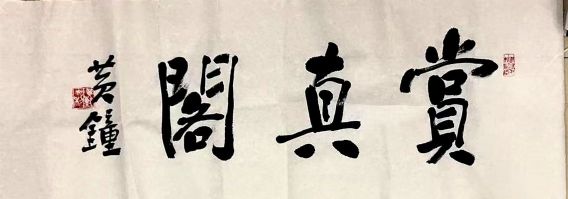 賞真閣
黄鐘